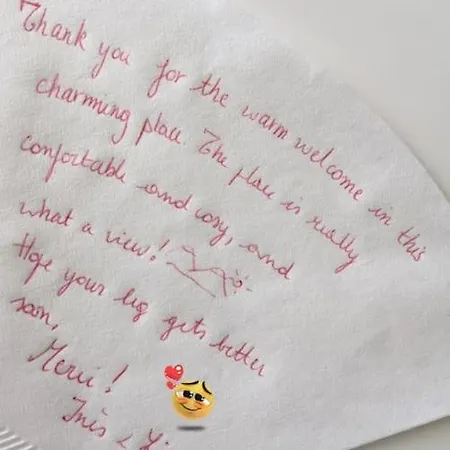 Thank you for the warm welcome in this
charming place. The place is really
confortable and cosy, and
what a view!
Hope your leg gets better
soon,
Merci!
Inès &